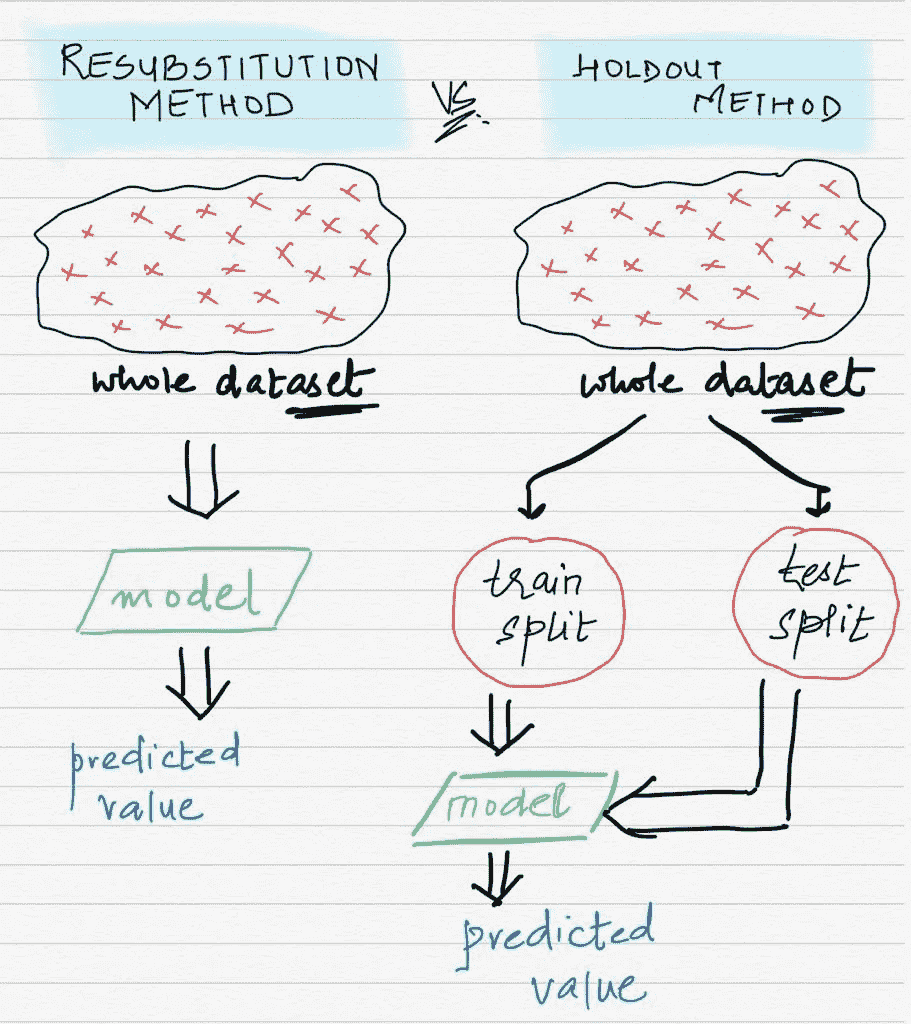 RESUBSTITUTION
METHOD
VS
HOLDOUT
METHOD
whole dataset
model
predicted
value
whole dataset
train
split
test
split
model
predicted
value